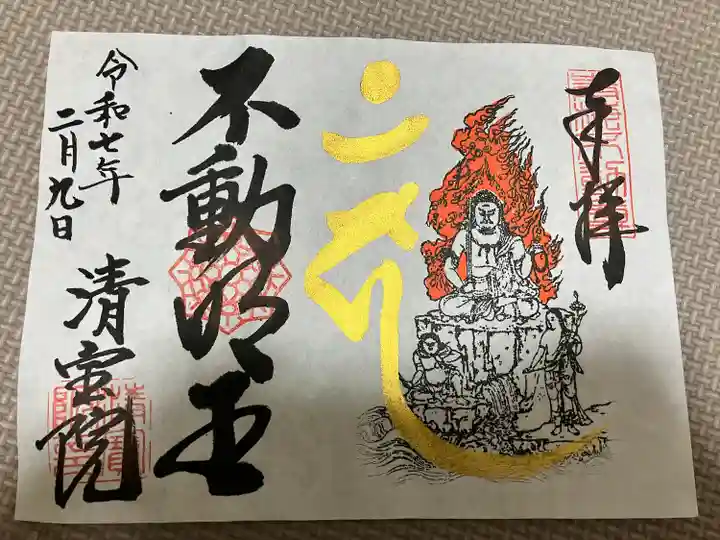 奉拝
不動明王
令和七年
二月九日
清宝院